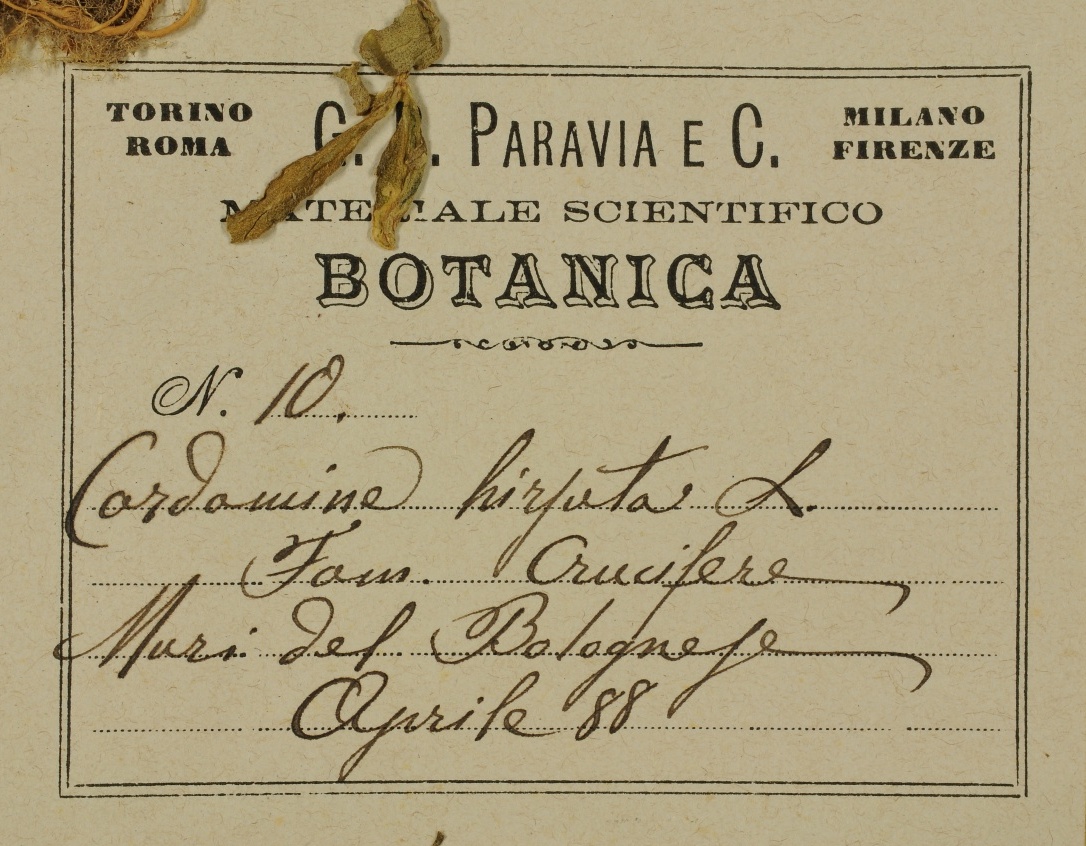 TORINO ROMA
G. . PARAVIA E C.
MILANO FIRENZE
MATERIALE SCIENTIFICO
BOTANICA
N. 10.
Cardamine hirsuta L.
Fam. Crucifere
Muri del Bolognese
Aprile 88